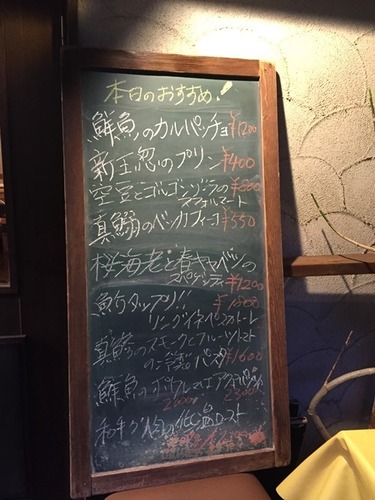 本日のおすすめ!
鮮魚のカルパッチョ ¥1200
新玉葱のプリン ¥400
空豆とゴルゴンゾーラの ¥800
スフォルマート
真鰯のベッカフィーコ ¥550
桜海老と春キャベツの
スパゲッティ ¥1200
魚介タップリ!! ¥1800
リングイネペスカトーレ
真鯵のスモークとフルーツトマト
の冷製パスタ ¥1600
鮮魚のポワレorアクアパッツァ
2300
和牛 低温ロースト